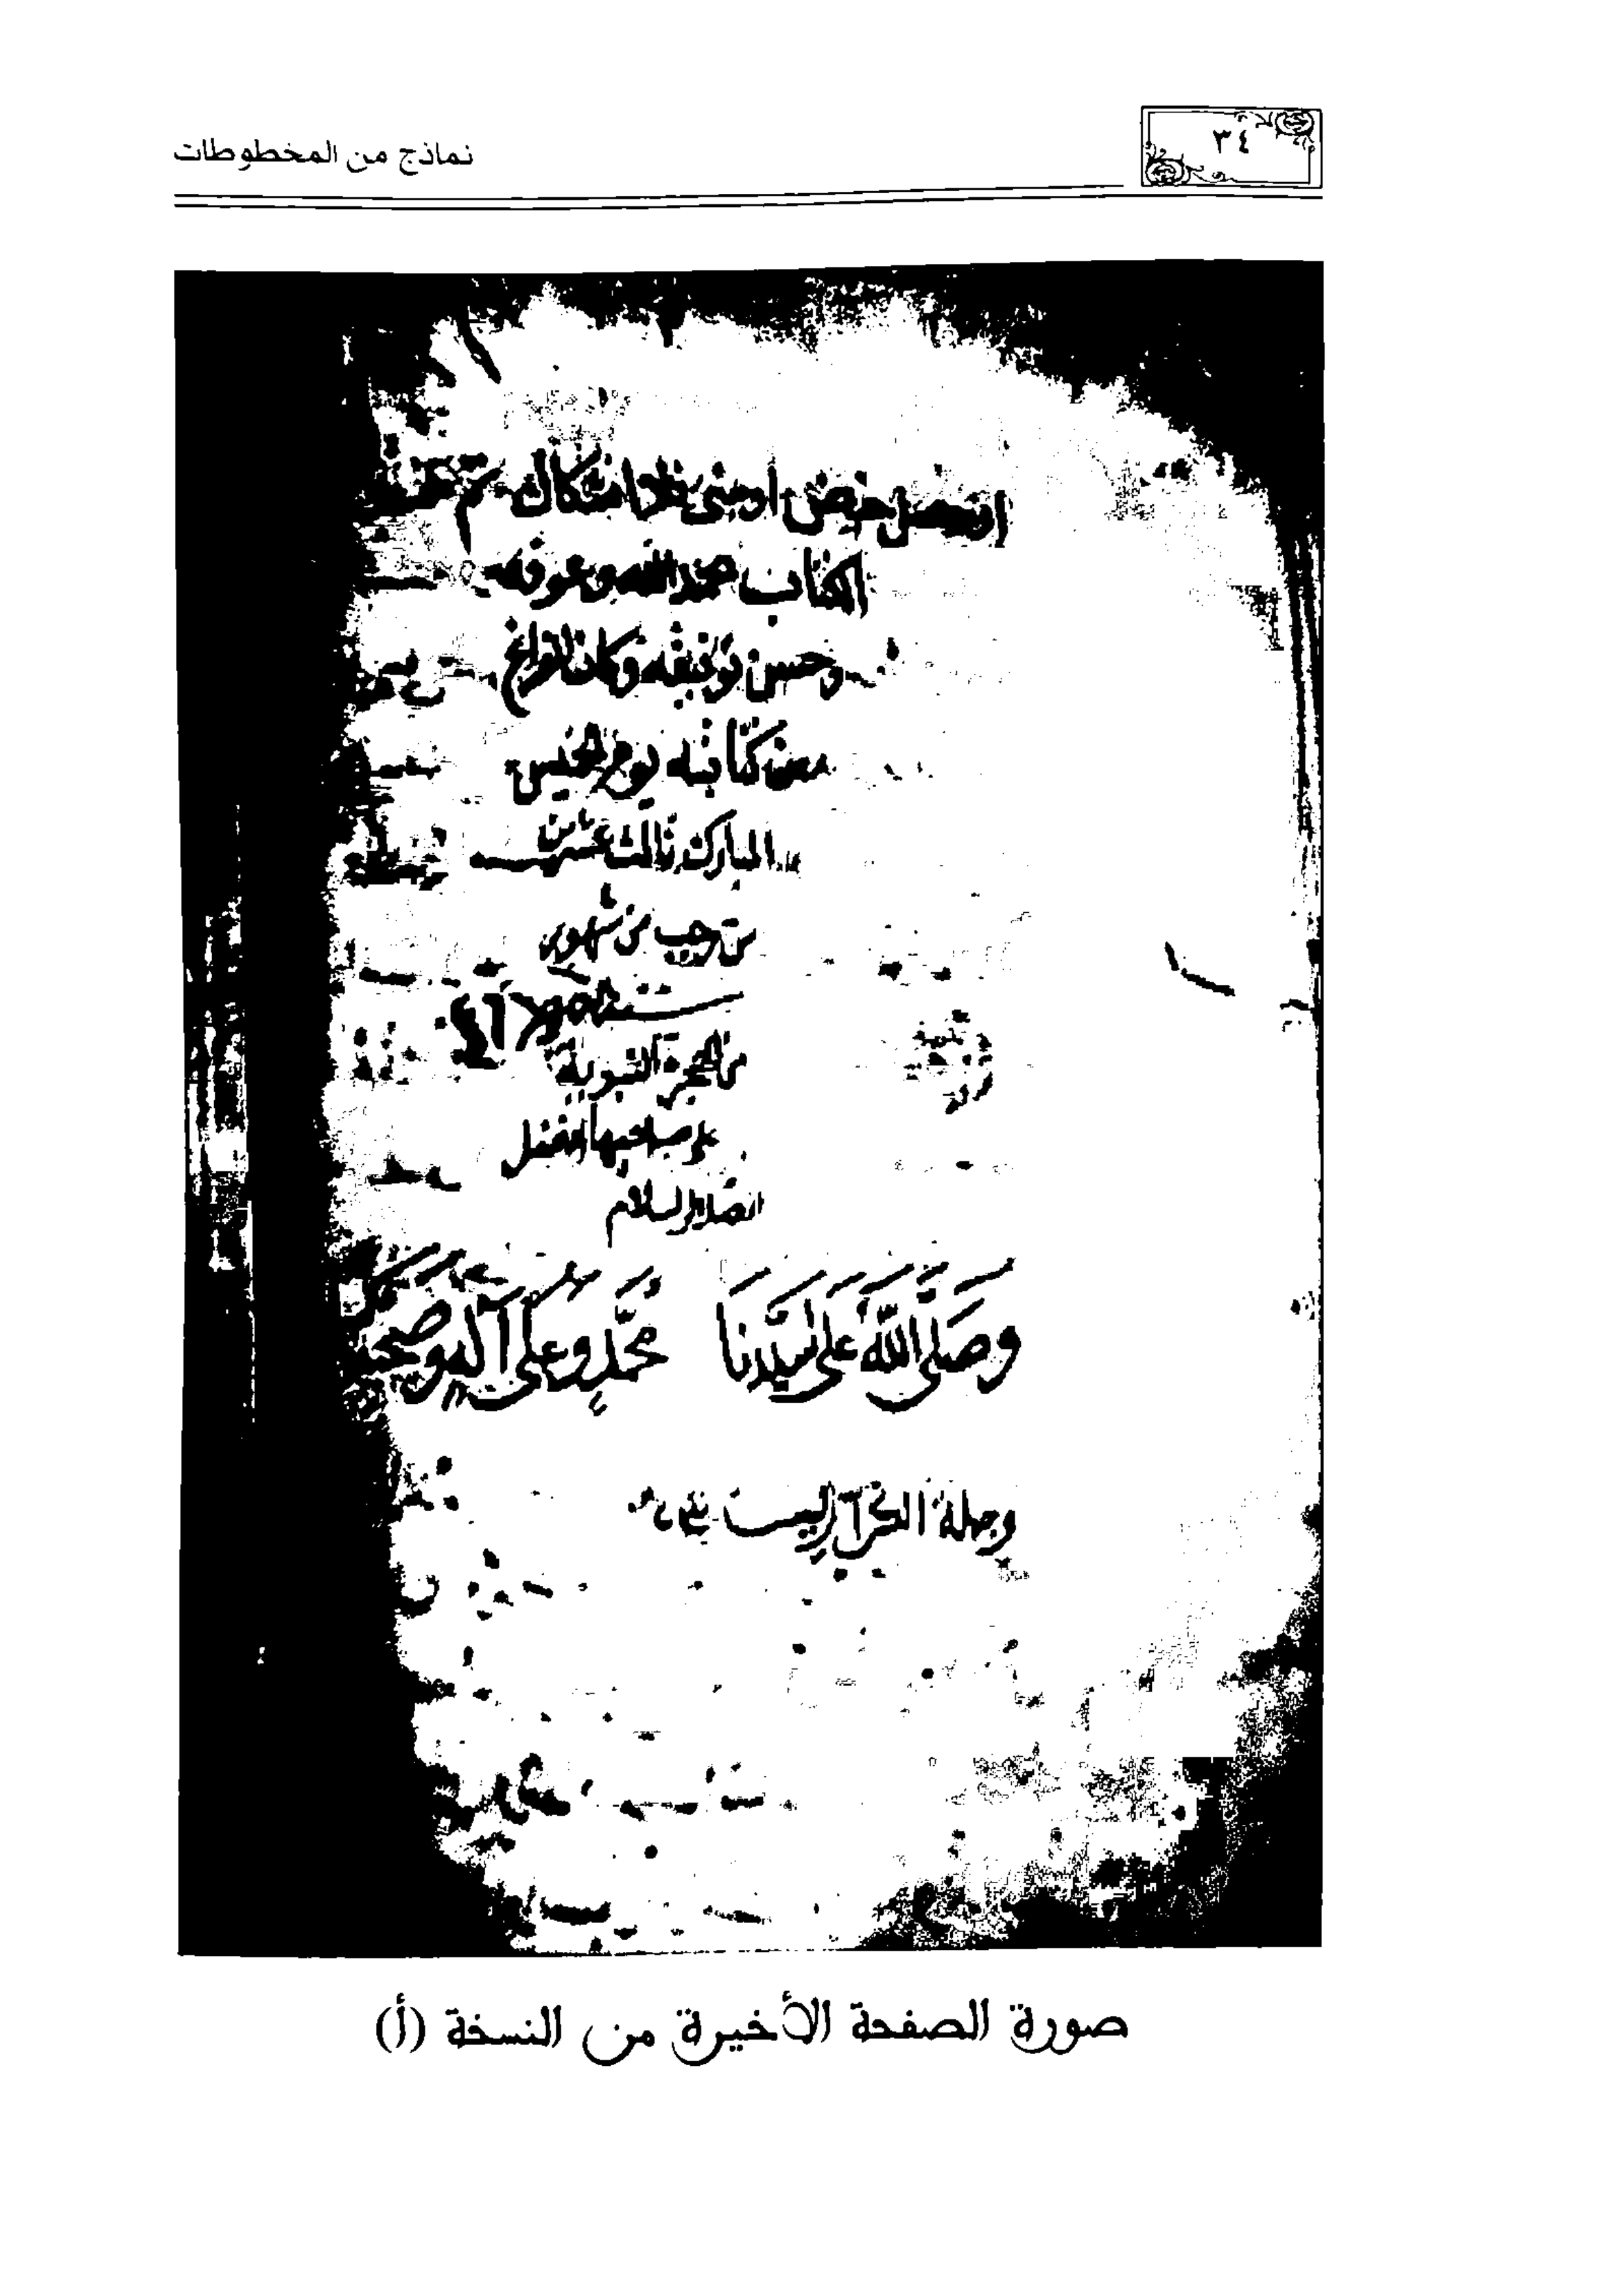 ٣٤
نماذج من المخطوطات
حيض او مني فلا اشكال تم
الكتاب بحمد الله وعونه
وحسن توفيقه وكان الفراغ
من كتابته يوم الخميس
المبارك ثالث عشرين
رجب من شهور
سنة
من الهجرة النبوية
على صاحبها افضل
الصلاة والسلام
وَصَلَّى اللَّهُ عَلَى سَيِّدِنَا مُحَمَّدٍ وَعَلَى آلِهِ وَصَحْبِهِ
وجملة
صورة الصفحة الأخيرة من النسخة (أ)